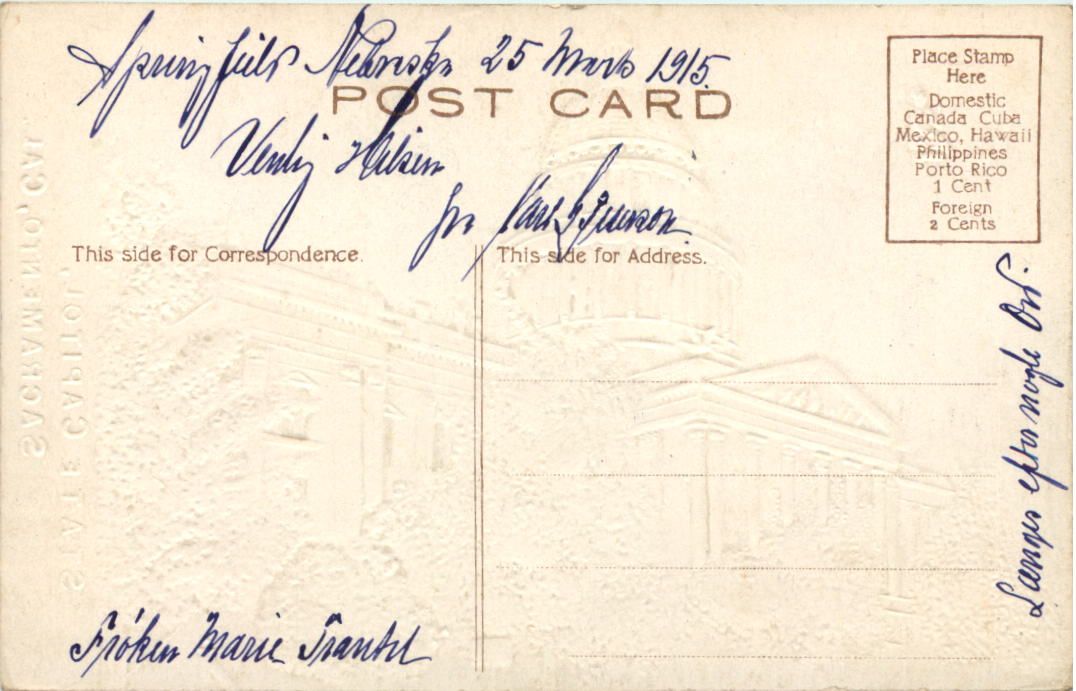 Springfield Nebraska 25 Marts 1915
POST CARD
Venlig Hilsen
fra Karl
This side for Correspondence.
This side for Address.
Place Stamp
Here
Domestic
Canada Cuba
Mexico, Hawaii
Philippines
Porto Rico
1 Cent
Foreign
2 Cents
Længes efter nogle Ord.
Fröken Marie
STATE CAPITOL,
SACRAMENTO, CAL.